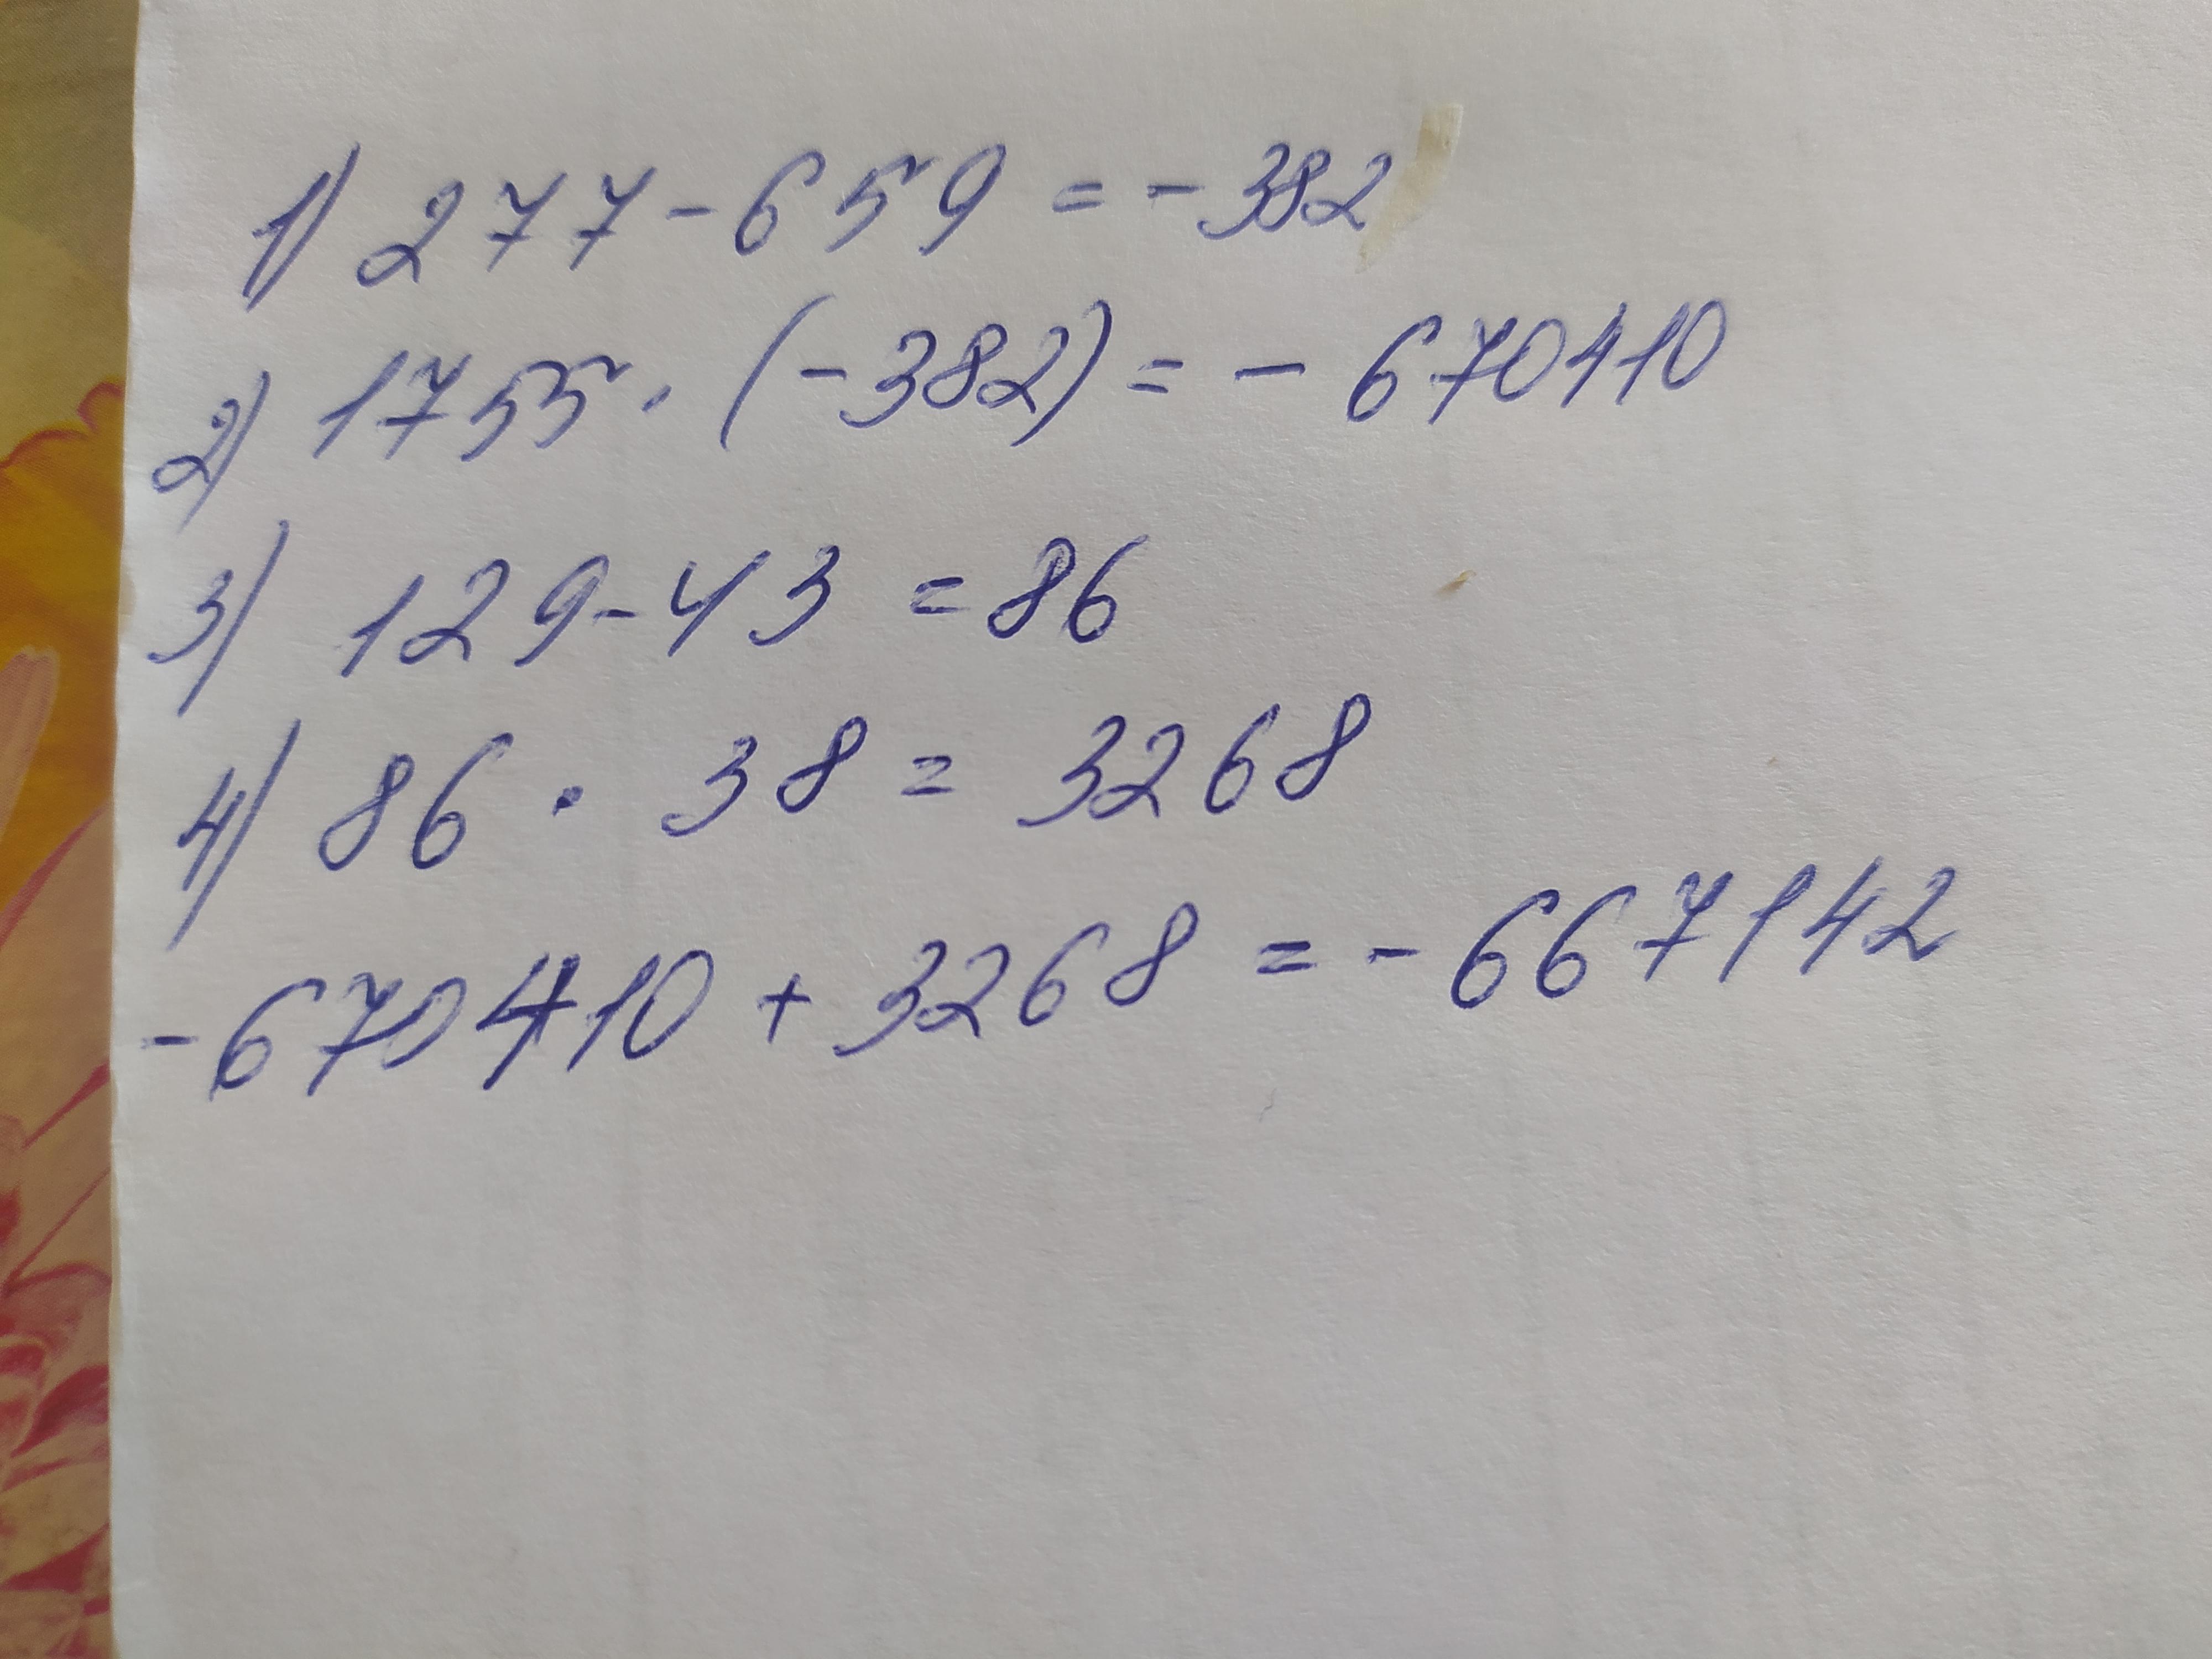 1) 277-659 = -382
2) 1755 · (-382) = - 670410
3) 129-43 = 86
4) 86 · 38 = 3268
-670410 + 3268 = -667142